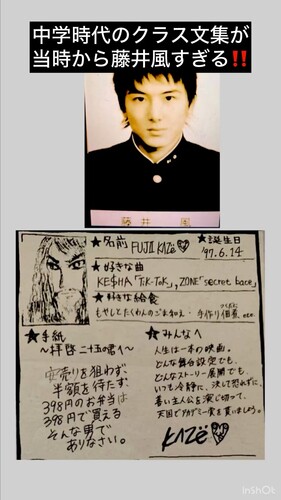 中学時代のクラス文集が
当時から藤井風すぎる‼️
藤井 風
★名前 FUJII KAZë
★誕生日
'97.6.14
★好きな曲
KE$HA「TiK-ToK」, ZONE「secret base」
★好きな給食
もやしとたくわんのごま和え・手作り佃煮 etc.
★手紙
～拝啓 二十五の君へ～
安売りを狙わず、
半額を待たず、
398円のお弁当は
398円で買える
そんな男で
ありなさい。
★みんなへ
人生は一本の映画。
どんな舞台設定でも、
どんなストーリー展開でも、
いつも冷静に、決して恐れずに、
善い主人公を演じ切って、
天国でアカデミー賞を貰いましょう。
KAZë
InShOt